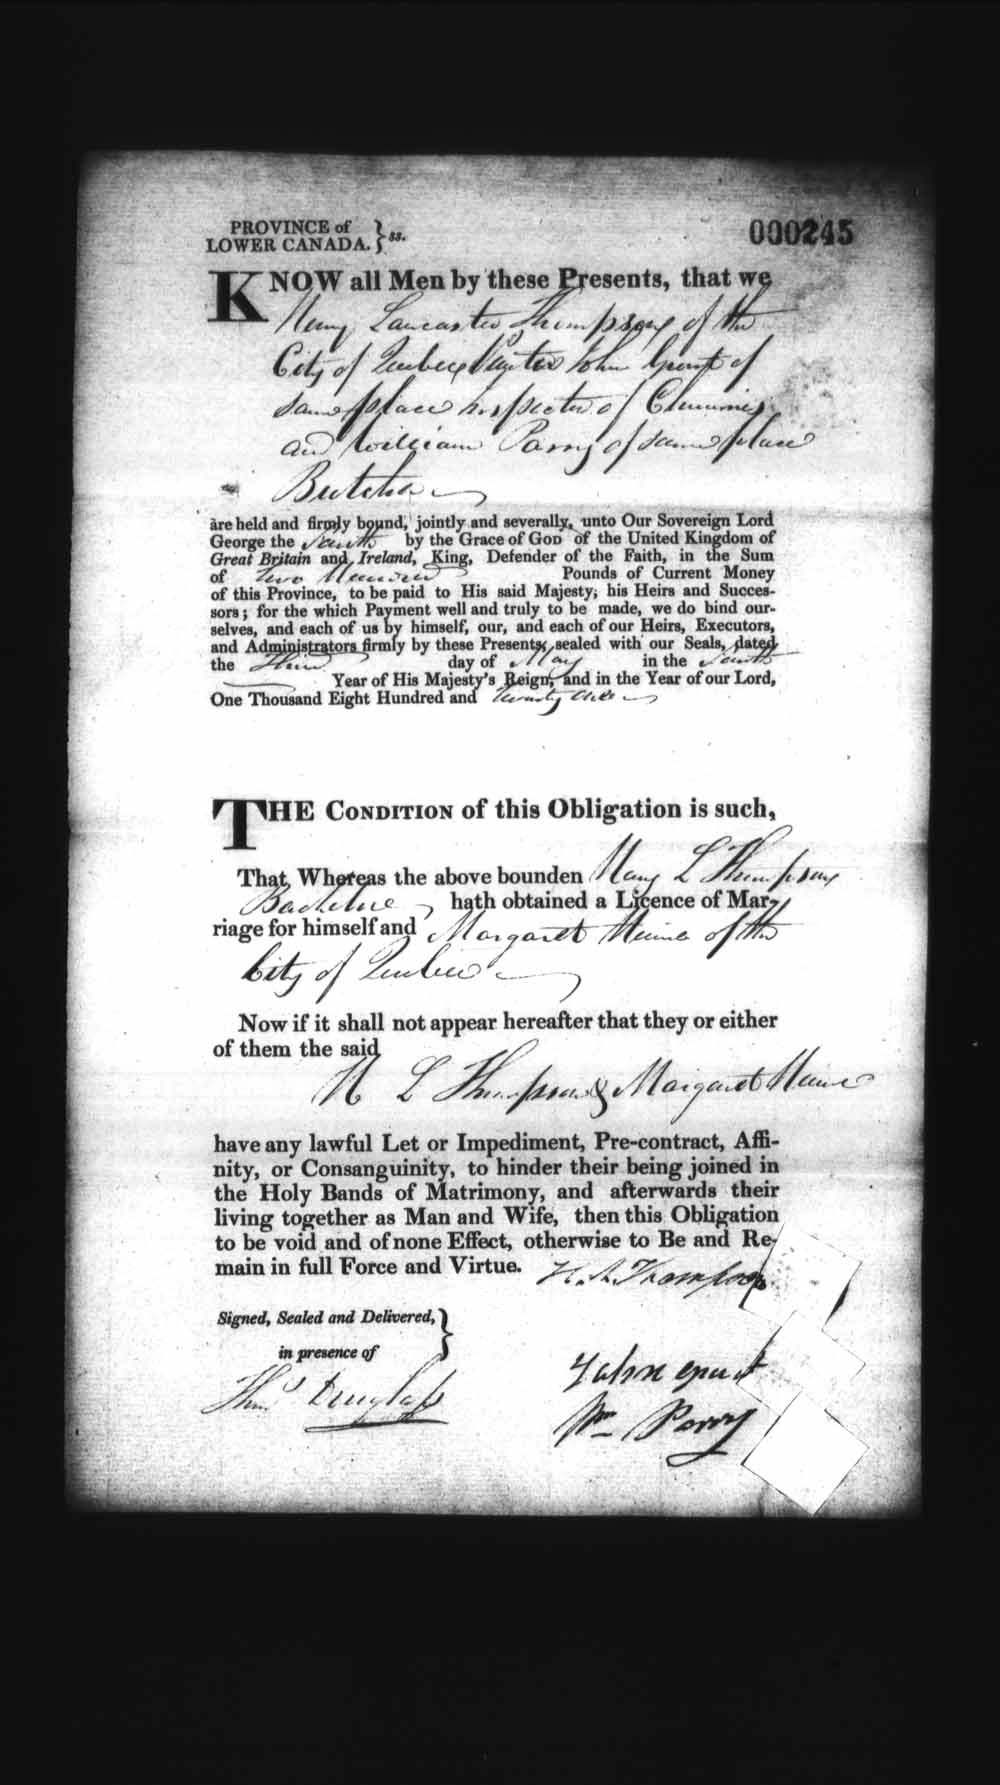 PROVINCE of
LOWER CANADA. } ss.
000245
KNOW all Men by these Presents, that we
Henry Lancaster Thompson of the
City of Quebec John Grant of
same place Inspector of Chimnies
and William Parry of same place
Butcher
are held and firmly bound, jointly and severally, unto Our Sovereign Lord
George the Fourth by the Grace of GOD of the United Kingdom of
Great Britain and Ireland, King, Defender of the Faith, in the Sum
of Two Hundred Pounds of Current Money
of this Province, to be paid to His said Majesty, his Heirs and Succes-
sors; for the which Payment well and truly to be made, we do bind our-
selves, and each of us by himself, our, and each of our Heirs, Executors,
and Administrators firmly by these Presents, sealed with our Seals, dated
the Third day of May in the Fourth
Year of His Majesty's Reign, and in the Year of our Lord,
One Thousand Eight Hundred and twenty
THE CONDITION of this Obligation is such,
That Whereas the above bounden Henry L Thompson
Bachelor hath obtained a Licence of Mar-
riage for himself and Margaret of the
City of Quebec
Now if it shall not appear hereafter that they or either
of them the said
H L Thompson & Margaret
have any lawful Let or Impediment, Pre-contract, Affi-
nity, or Consanguinity, to hinder their being joined in
the Holy Bands of Matrimony, and afterwards their
living together as Man and Wife, then this Obligation
to be void and of none Effect, otherwise to Be and Re-
main in full Force and Virtue. H. L. Thompson
Signed, Sealed and Delivered, }
in presence of
Thos Douglass
John Grant
Wm Parry